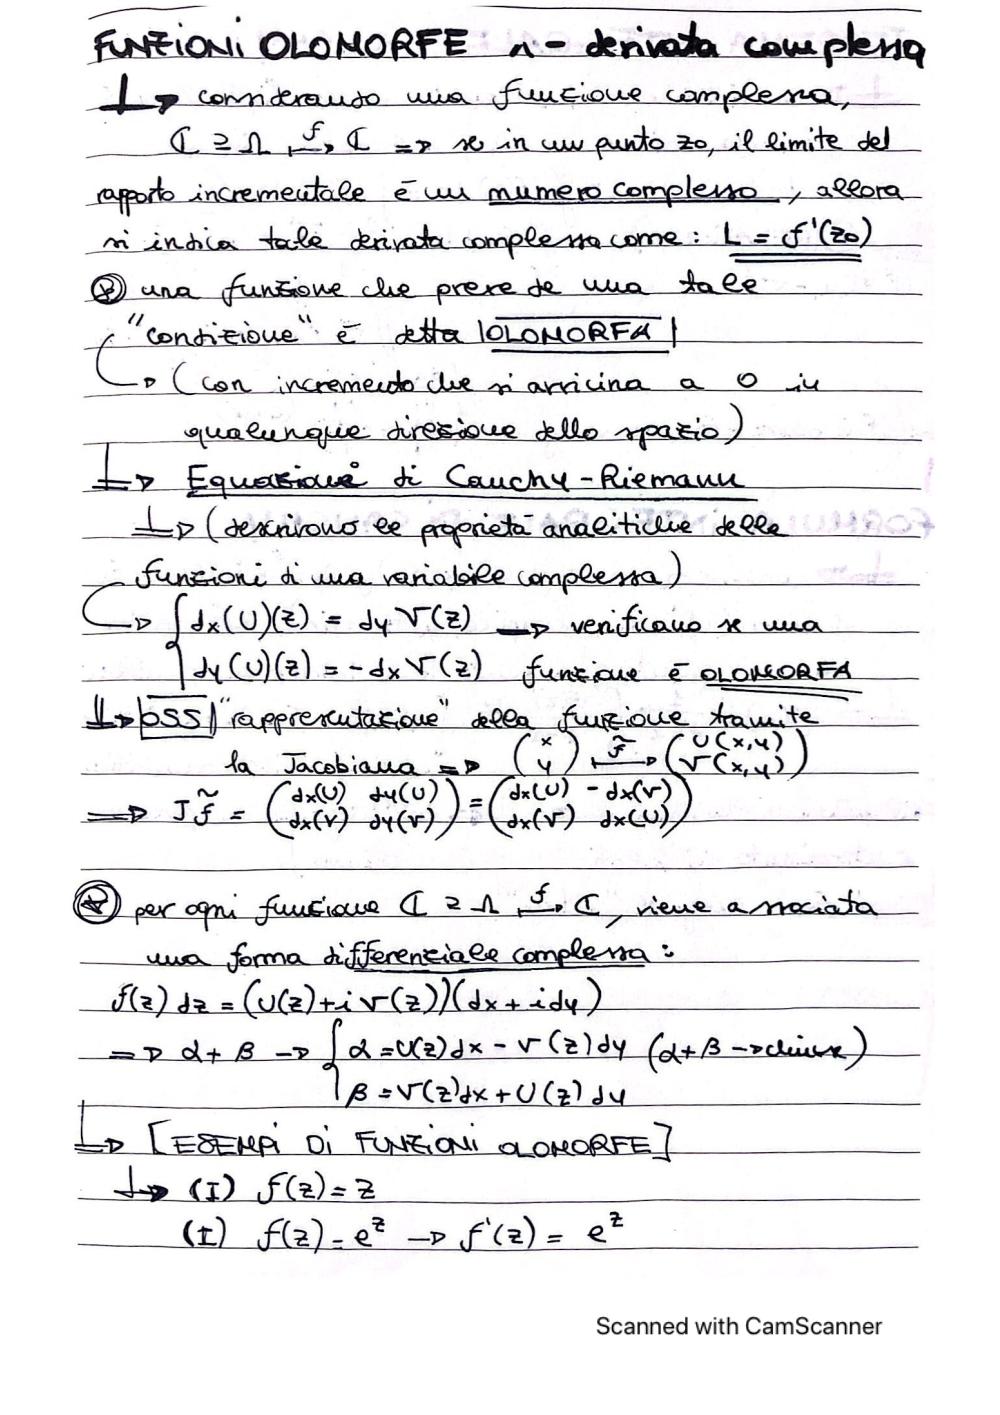 FUNZIONI OLOMORFE n - derivata complessa
↳ considerando una funzione complessa,
ℂ ⊇ Ω ↦ᶠ ℂ => se in un punto z0, il limite del
rapporto incrementale é un numero complesso, allora
si indica tale derivata complessa come : L = f'(z0)
una funzione che prevede una tale
"condizione" é detta |OLOMORFA|
↳ (con incremento che si avvicina a 0 in
qualunque direzione dello spazio)
↳ Equazioni di Cauchy-Riemann
↳ (descrivono le proprietá analitiche delle
funzioni di una variabile complessa)
↳ { dx(U)(z) = dy V(z) → verificano se una
dy(U)(z) = - dx V(z) funzione é OLOMORFA
↳ |OSS| "rappresentazione" della funzione tramite
la Jacobiana => (x y) ↦ f̃ (U(x,y) V(x,y))
=> J f̃ = (dx(U) dy(U) dx(V) dy(V)) = (dx(U) - dx(V) dx(V) dx(U))
per ogni funzione ℂ ⊇ Ω ↦ᶠ ℂ, viene associata
una forma differenziale complessa :
f(z) dz = (U(z) + i V(z))(dx + i dy)
=> α + β → { α = U(z) dx - V(z) dy (α + β → chiuse)
β = V(z) dx + U(z) dy
↳ [ESEMPI DI FUNZIONI OLOMORFE]
↳ (I) f(z) = z
(I) f(z) = e^z → f'(z) = e^z
Scanned with CamScanner